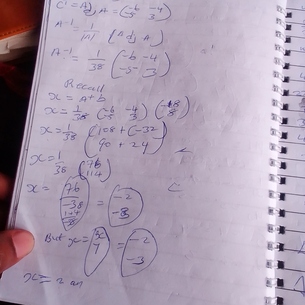 C^T = Adj A = (-6 -4 / -5 3)
A⁻¹ = 1/|A| (Adj A)
A⁻¹ = 1/38 (-6 -4 / -5 3)
Recall
x = A⁻¹b
x = 1/38 (-6 -4 / -5 3) (-18 / 8)
x = 1/38 (108 + (-32) / 90 + 24)
x = 1/38 (76 / 114)
x = (76/-38 / 114/-38) = (-2 / -3)
But x = (x / y) = (-2 / -3)
x = 2 an